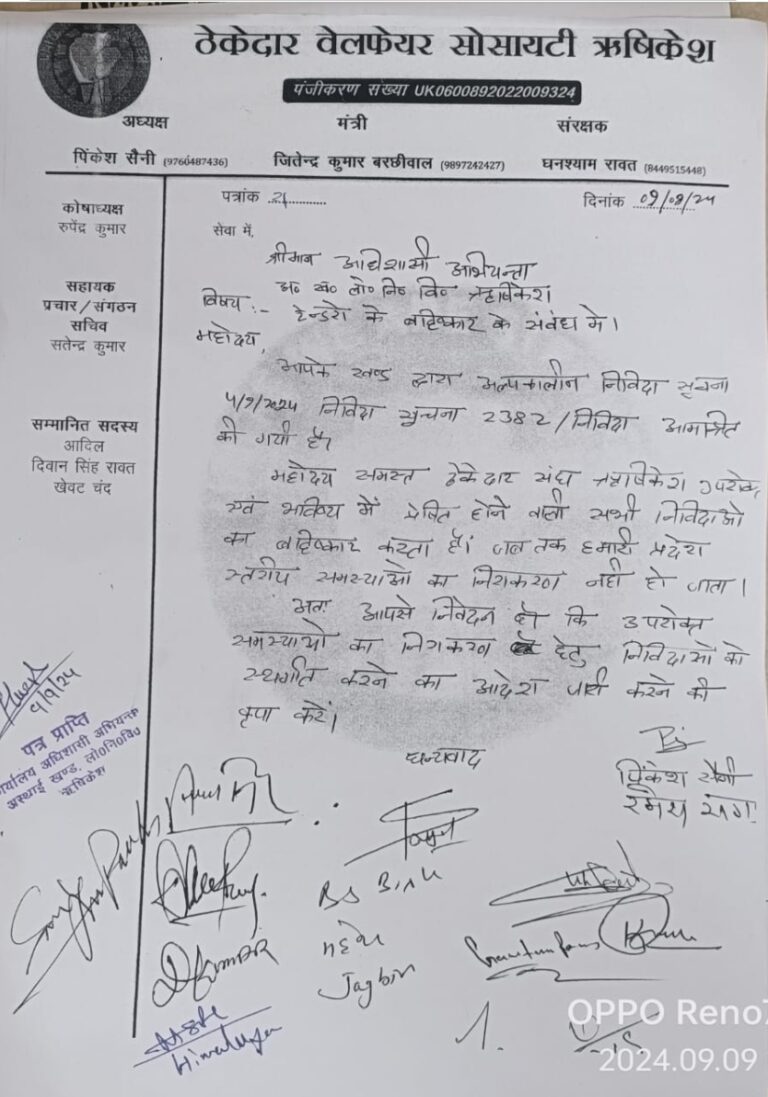 ठेकेदार वेलफेयर सोसायटी ऋषिकेश
पंजीकरण संख्या UK0600892022009324
अध्यक्ष मंत्री संरक्षक
पिंकेश सैनी (9760487436) जितेन्द्र कुमार बरछीवाल (9897242427) घनश्याम रावत (8449515448)
कोषाध्यक्ष
रुपेंद्र कुमार
सहायक
प्रचार/संगठन
सचिव
सतेन्द्र कुमार
सम्मानित सदस्य
आदिल
दिवान सिंह रावत
खेवट चंद
पत्रांक 21 दिनांक 09/09/24
सेवा में,
श्रीमान अधिशासी अभियन्ता
अ० ख० लो० नि० वि० ऋषिकेश
विषय:- टेन्डरो के बहिष्कार के संबंध मे।
महोदय,
आपके खण्ड द्वारा अल्पकालीन निविदा सूचना
4/9/2024 निविदा सूचना 2382/निविदा आमंत्रित
की गयी है।
महोदय समस्त ठेकेदार संघ ऋषिकेश उपरोक्त
एवं भविष्य में प्रेषित होने वाली सभी निविदाओ
का बहिष्कार करता है। जब तक हमारी प्रदेश
स्तरीय समस्याओ का निराकरण नही हो जाता।
अतः आपसे निवेदन है कि उपरोक्त
समस्याओ का निराकरण हेतु निविदाओ को
स्थगित करने का आदेश जारी करने की
कृपा करें।
धन्यवाद
पिंकेश सैनी
9/9/24
पत्र प्राप्ति
कार्यालय अधिशासी अभियन्ता
अस्थाई खण्ड, लो०नि०वि०
ऋषिकेश
BS Bisht
महेश
Jagbir
D Kumar
Himalaya
1.
OPPO Reno7
2024.09.09